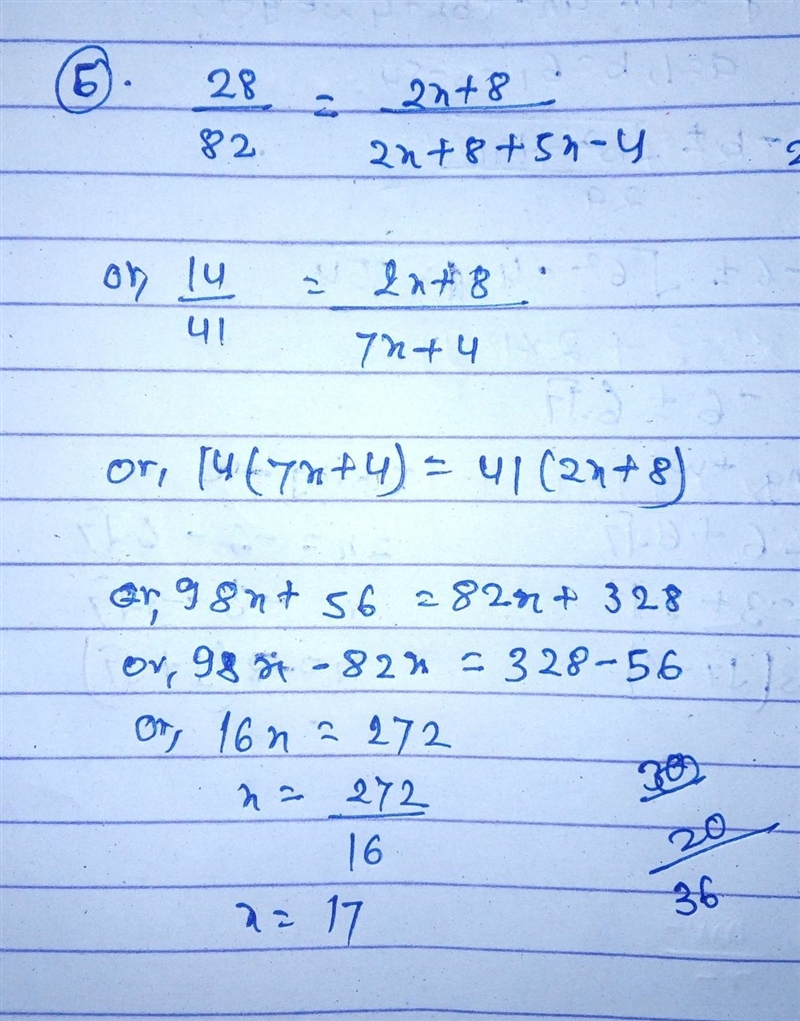 5. 28/82 = 2x+8/2x+8+5x-4
or, 14/41 = 2x+8/7x+4
or, 14(7x+4) = 41(2x+8)
or, 98x+ 56 = 82x+ 328
or, 98x - 82x = 328-56
or, 16x = 272
x = 272/16
x = 17
20
36